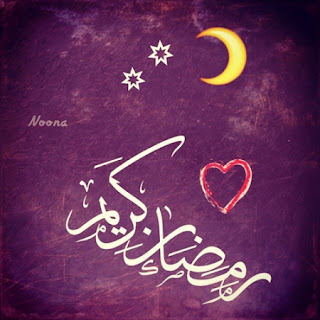 Noona
رمضان كريم